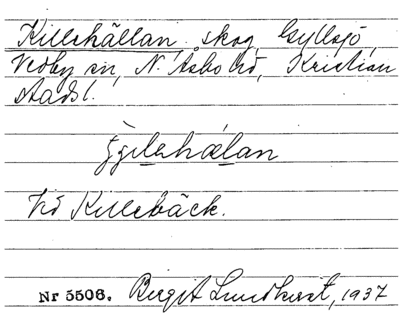 Killehällan, skog, Gyllsjö
Vedby sn, N. Åsbo hd, Kristian
stadsl.
Vid Killebäck.
Nr 5506. Birgit Lundkvist, 1937